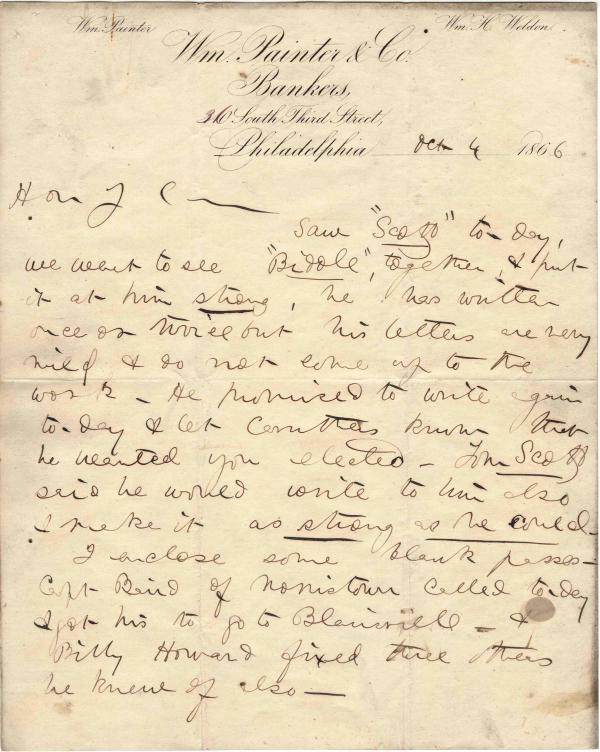 Wm. Painter
Wm. H. Weldon
Wm. Painter & Co.
Bankers,
36 South Third Street,
Philadelphia Oct 4 1866
Hon J C
Saw "Scott" to-day,
we went to see "Biddle", together, & put
it at him strong, he has written
once or twice but his letters are very
mild & do not come up to the
work - He promised to write again
to-day & let Carruthers know that
he wanted you elected - Tom Scott
said he would write to him also
& make it as strong as he could -
I enclose some blank passes -
Capt Baird of Norristown called to-day
& got his to go to Blairsville - &
Billy Howard fixed three others
he knew of also -